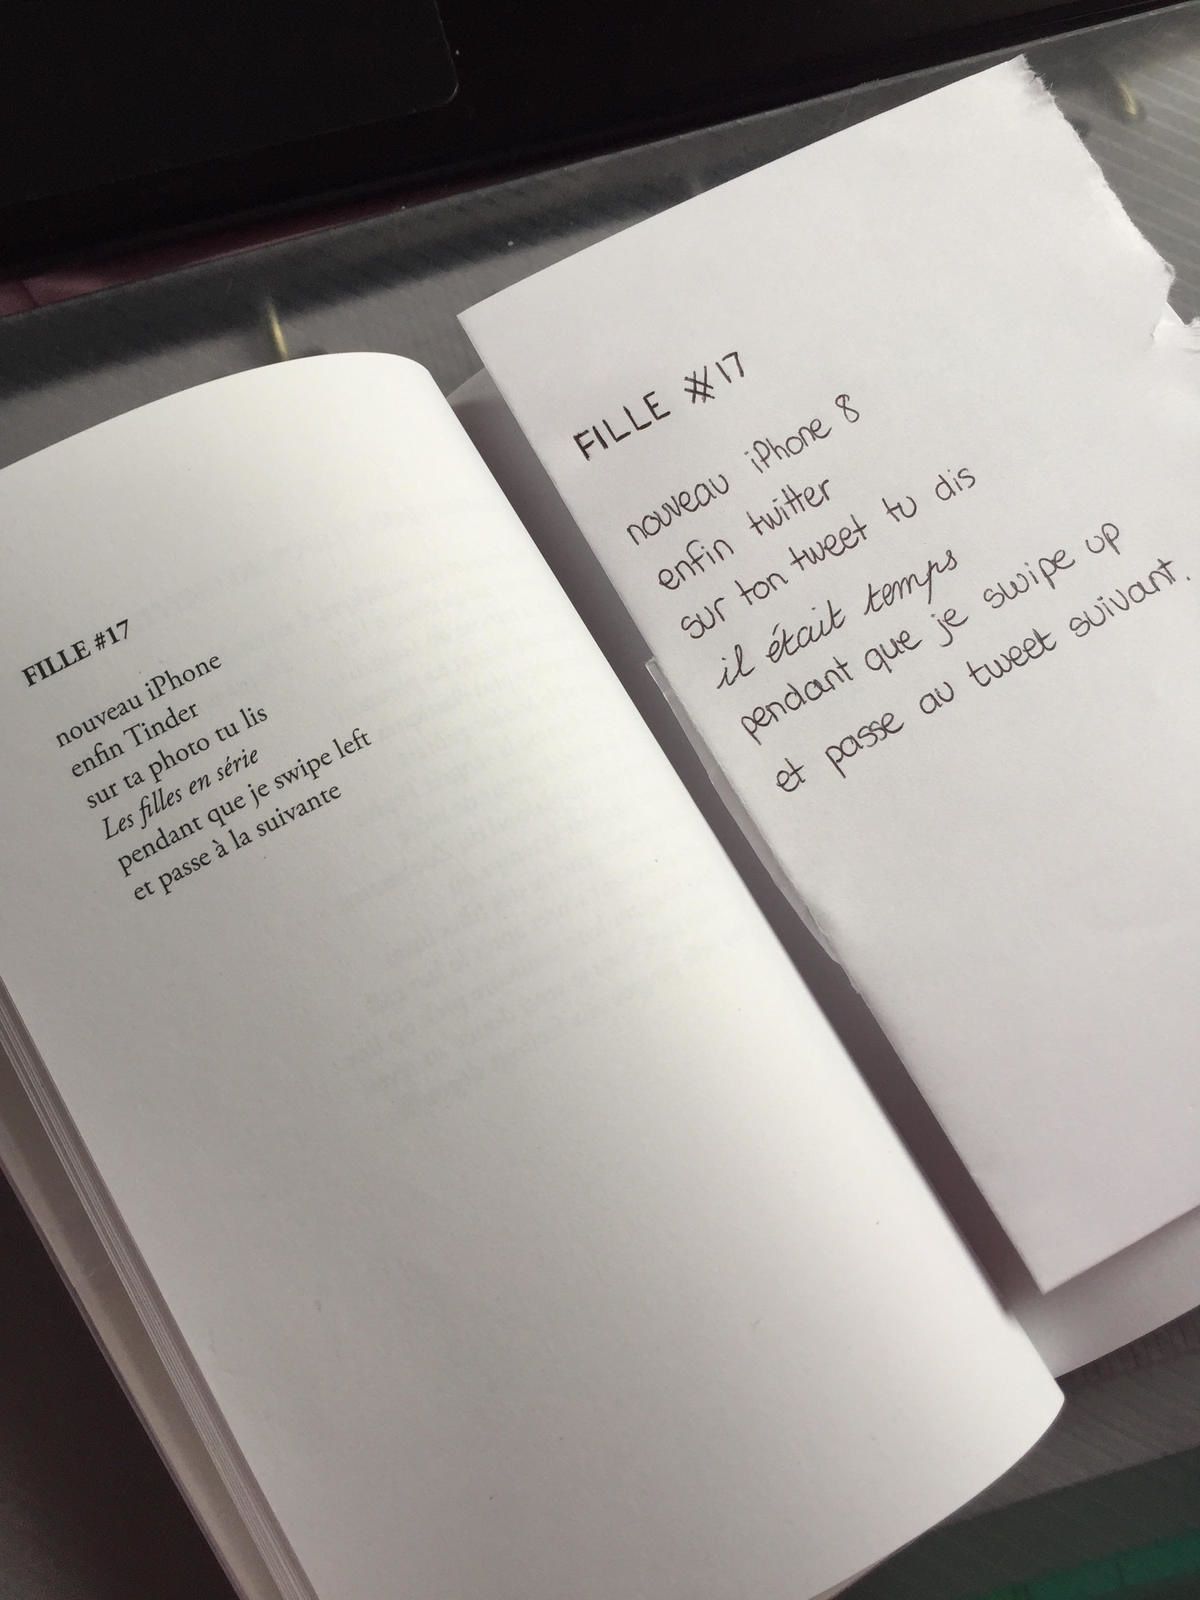 FILLE #17
nouveau iPhone
enfin Tinder
sur ta photo tu lis
Les filles en série
pendant que je swipe left
et passe à la suivante
FILLE #17
nouveau iPhone 8
enfin twitter
sur ton tweet tu dis
il était temps
pendant que je swipe up
et passe au tweet suivant.